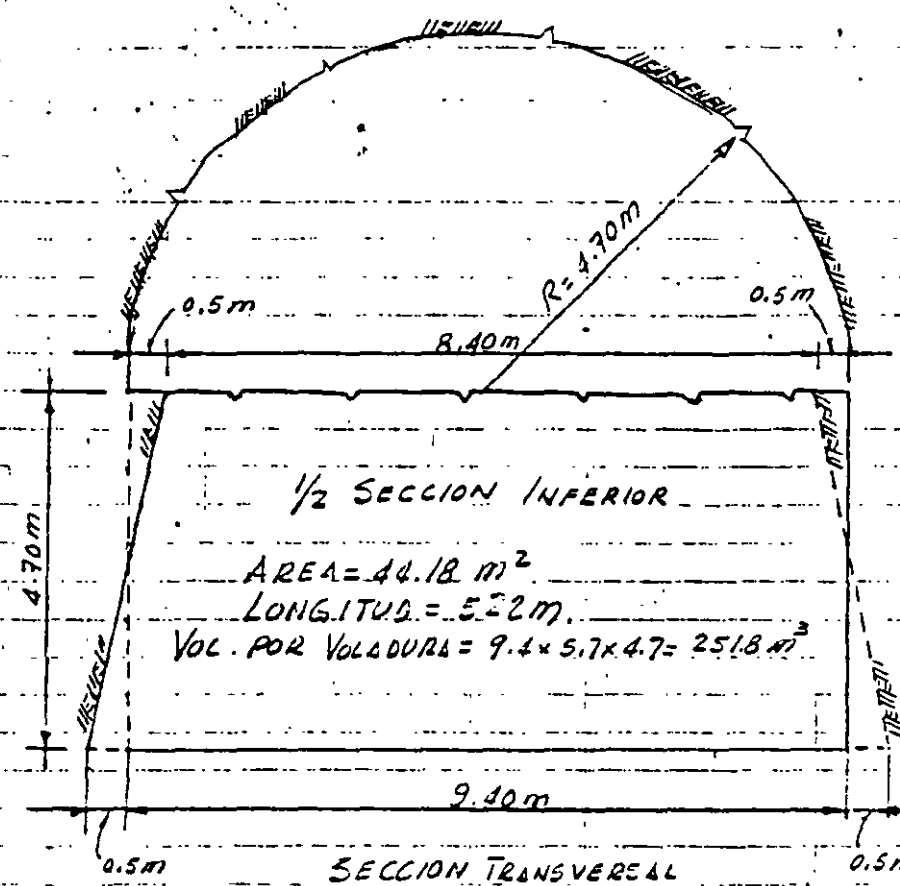 R= 4.70m
0.5m
8.40m
0.5m
4.70m
1/2 SECCION INFERIOR
AREA= 44.18 m²
LONGITUD = m.
VOL. POR VOLADURA = 9.4 x 5.7 x 4.7= 251.8 m³
9.40m
0.5m
0.5m
SECCION TRANSVERSAL